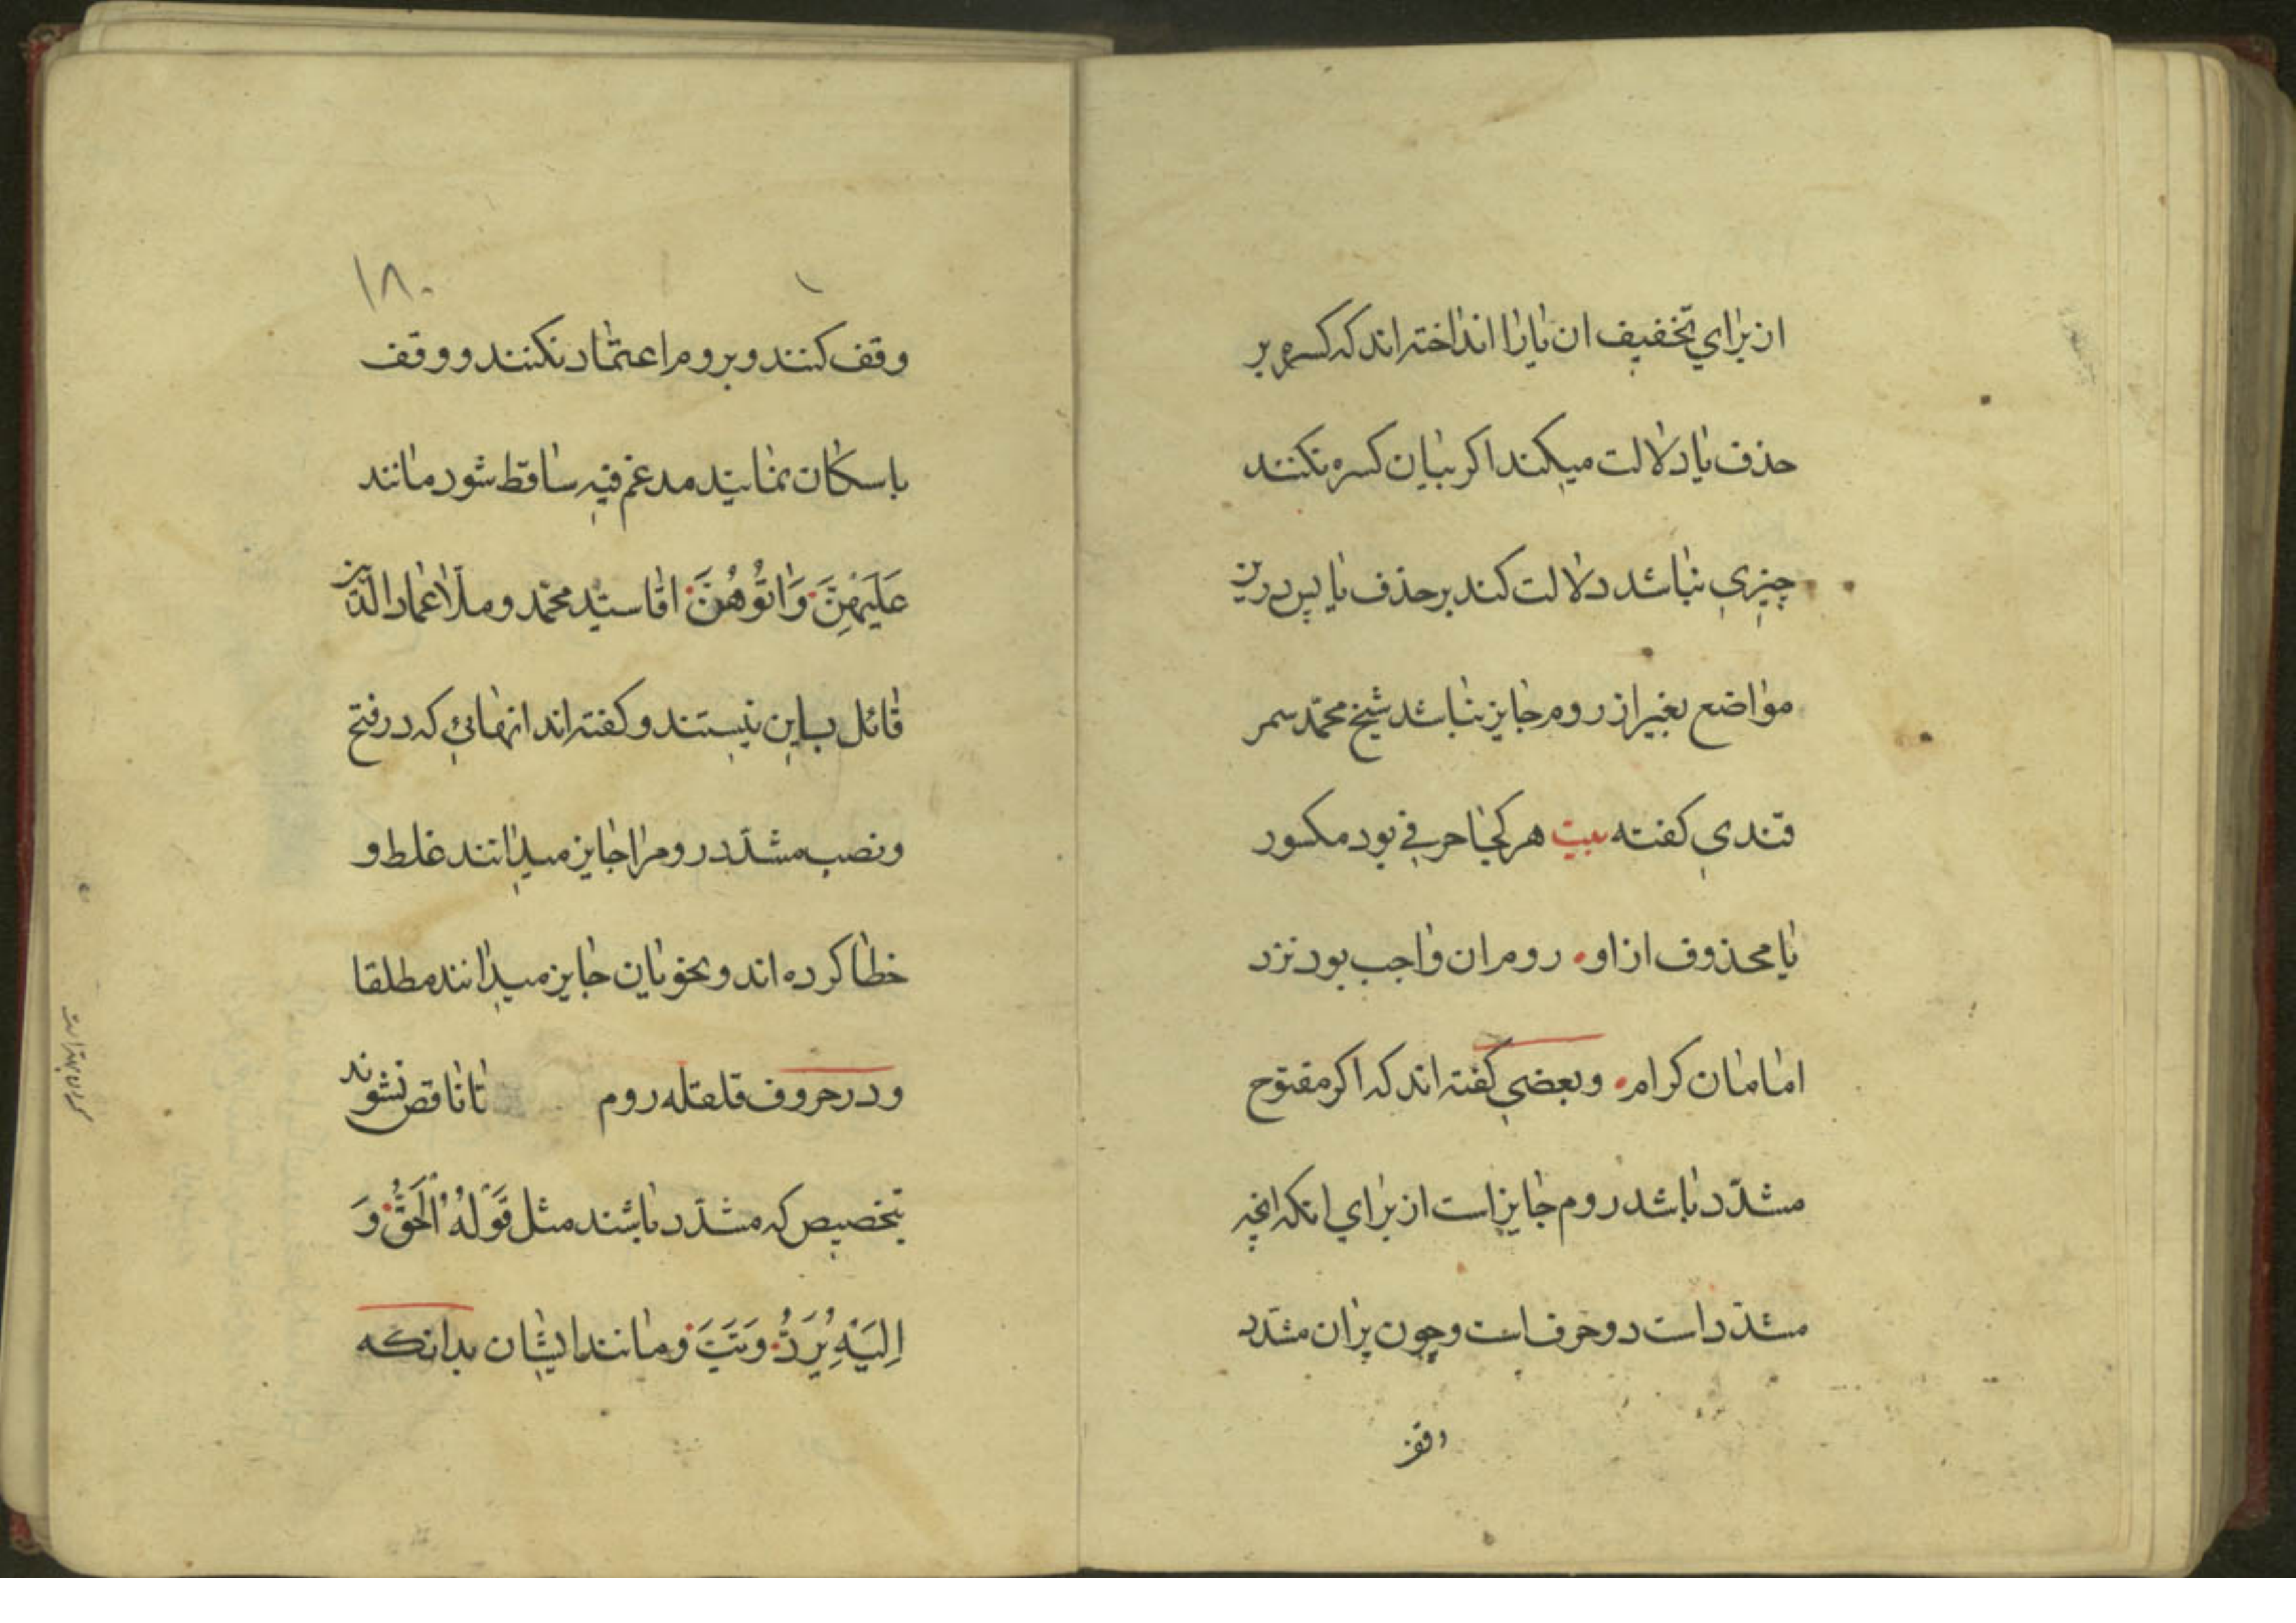 از برای تخفیف ان یا را انداخته اند که کسره بر
حذف یا دلالت میکند اکر بیان کسره نکنند
چیزی نباشد دلالت کند بر حذف یا پس درین
مواضع بغیر از روم جایز نباشد شیخ محمّد سمر
قندی کفته بیت هر کجا حرفی بود مکسور
یا محذوف از او روم ان واجب بود نزد
امامان کرام و بعضی کفته اند که اکر مفتوح
مشدّد باشد روم جایز است از برای انکه انچه
مشدّد است دو حرف است و چون بران مشدّد
وقف
۱۸۰
وقف کنند و بروم اعتماد نکنند و وقف
باسکان نمایند مدغم فیه ساقط شود مانند
عَلَیهِنَّ وَاتُوهُنَّ اقا سیّد محمّد و ملّا عماد الدّین
قائل باین نیستند و کفته اند انهائی که در فتح
و نصب مشدّد روم را جایز میدانند غلط و
خطا کرده اند و نحویان جایز میدانند مطلقا
و در حروف قلقله روم تا ناقص نشوند
بتخصیص که مشدّد باشند مثل قَوْلُهُ الْحَقُّ وَ
اِلَیْهِ یُرَدُّ وَتَبَّ و مانند ایشان بدانکه